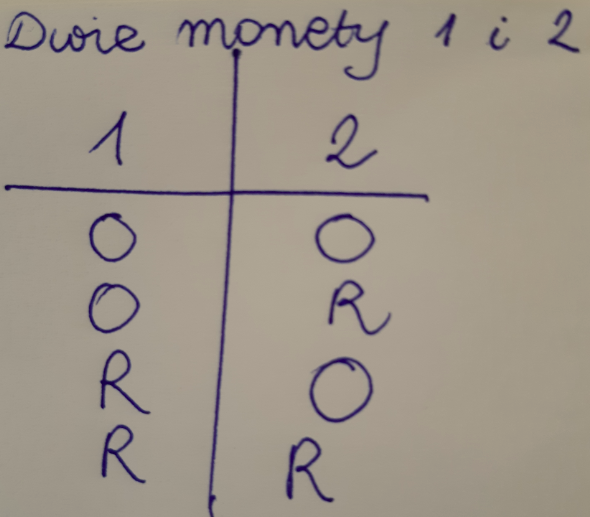 Dwie monety 1 i 2
1 2
O O
O R
R O
R R